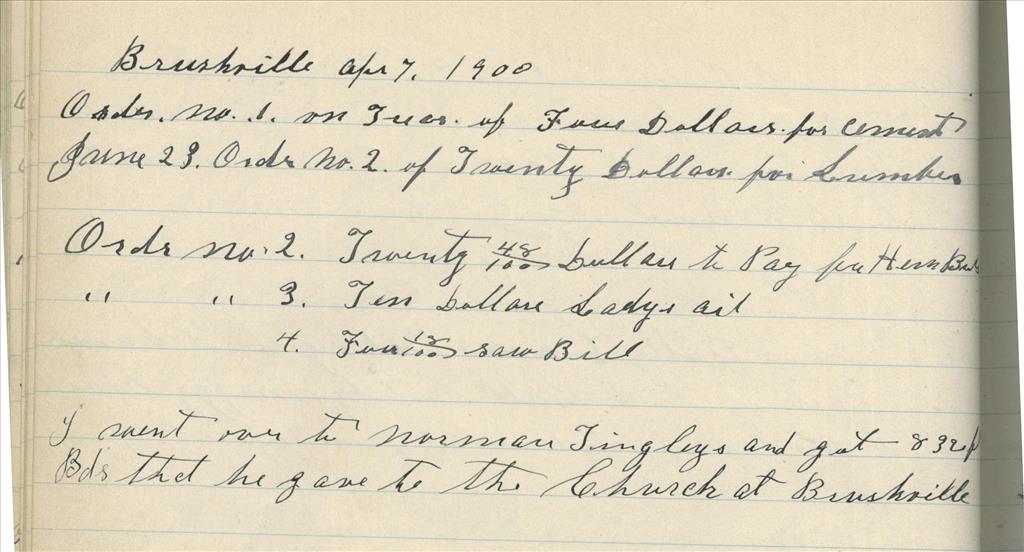 Brushville Apr 7, 1900
Order. No. 1. on Treas. of Four Dollars for cement
June 23. Ordr No. 2. of Twenty Dollars for Lumber
Ordr No. 2. Twenty 48/100 Dollars to Pay for Hem Bds
" " 3. Ten Dollars Ladys aid
4. Four 18/100 saw Bill
I went over to Norman Tingleys and got 832 f
Bds that he gave to the Church at Brushville